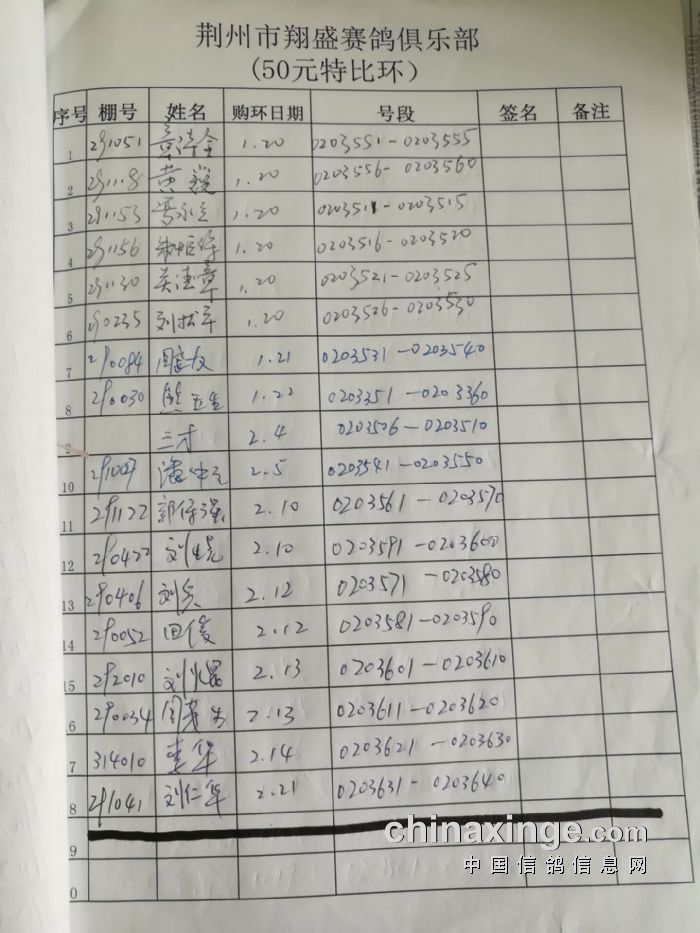 荆州市翔盛赛鸽俱乐部
(50元特比环)
序号 棚号 姓名 购环日期 号段 签名 备注
1 291051 1.20 0203551-0203555
2 291118 黄 1.20 0203556-0203560
3 291153 1.20 0203511-0203515
4 291156 1.20 0203516-0203520
5 291130 1.20 0203521-0203525
6 290235 刘松军 1.20 0203526-0203530
7 290084 1.21 0203531-0203540
8 290030 熊卫生 1.22 0203351-0203360
9 三才 2.4 0203506-0203510
10 291007 潘 2.5 0203541-0203550
11 291122 郭保强 2.10 0203561-0203570
12 290422 刘 2.10 0203591-0203600
13 290406 刘兵 2.12 0203571-0203580
14 290052 田俊 2.12 0203581-0203590
15 292010 刘 2.13 0203601-0203610
6 290034 2.13 0203611-0203620
7 314010 李华 2.14 0203621-0203630
8 291041 刘仁华 2.21 0203631-0203640
chinaxinge.com
9 中国信鸽信息网
0